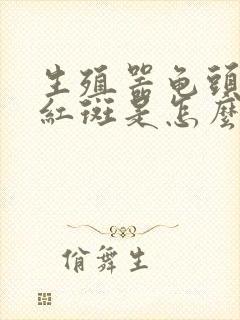 生殖器龟頭
紅斑是怎麼
俏舞生